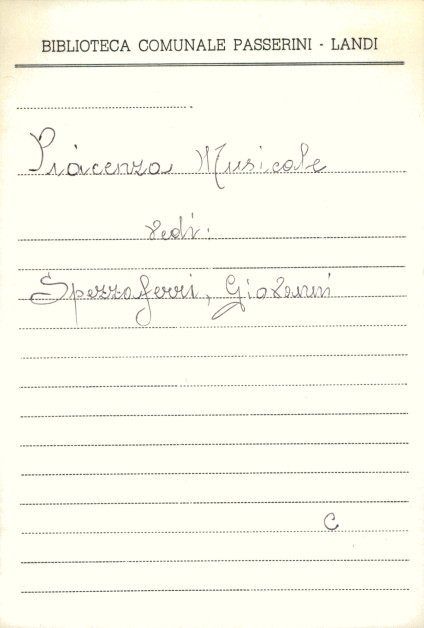 BIBLIOTECA COMUNALE PASSERINI - LANDI
Piacenza Musicale
vedi:
Spezzaferri, Giovanni
C